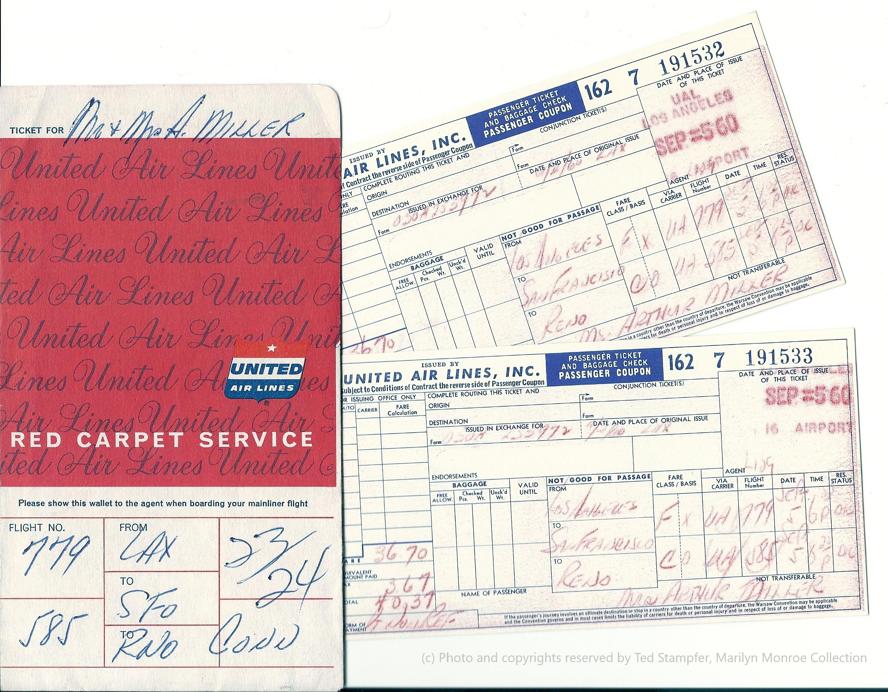 TICKET FOR Mr & Mrs A. MILLER
United Air Lines United
Lines United Air Lines
Air Lines United Air L
ted Air Lines United A
United Air Lines Unit
Lines United Air Lines
UNITED
AIR LINES
RED CARPET SERVICE
ted Air Lines United
Please show this wallet to the agent when boarding your mainliner flight
FLIGHT NO. FROM
779 LAX 23/24
TO
SFO
585 TO RNO CONN
162 7 191532
ISSUED BY
AIR LINES, INC.
of Contract the reverse side of Passenger Coupon
PASSENGER TICKET
AND BAGGAGE CHECK
PASSENGER COUPON
DATE AND PLACE OF ISSUE
OF THIS TICKET
UAL
LOS ANGELES
SEP =5 60
AIRPORT
CONJUNCTION TICKET(S)
COMPLETE ROUTING THIS TICKET AND
ORIGIN
DESTINATION
ISSUED IN EXCHANGE FOR
DATE AND PLACE OF ORIGINAL ISSUE
Form
AGENT
ENDORSEMENTS
BAGGAGE
FREE ALLOW. Checked Pcs. Wt. Unck'd Wt.
VALID UNTIL
NOT GOOD FOR PASSAGE
FARE CLASS / BASIS VIA CARRIER FLIGHT Number DATE TIME RES. STATUS
FROM
LOS ANGELES F X UA 779
TO
SAN FRANCISCO C O UA
TO
RENO
NOT TRANSFERABLE
MR ARTHUR MILLER
ISSUED BY
UNITED AIR LINES, INC.
Subject to Conditions of Contract the reverse side of Passenger Coupon
PASSENGER TICKET
AND BAGGAGE CHECK
PASSENGER COUPON
162 7 191533
DATE AND PLACE OF ISSUE
OF THIS TICKET
SEP =5 60
16 AIRPORT
CONJUNCTION TICKET(S)
FOR ISSUING OFFICE ONLY
CARRIER FARE Calculation
COMPLETE ROUTING THIS TICKET AND
ORIGIN
DESTINATION
ISSUED IN EXCHANGE FOR
DATE AND PLACE OF ORIGINAL ISSUE
Form
AGENT
ENDORSEMENTS
BAGGAGE
FREE ALLOW. Checked Pcs. Wt. Unck'd Wt.
VALID UNTIL
NOT GOOD FOR PASSAGE
FARE CLASS / BASIS VIA CARRIER FLIGHT Number DATE TIME RES. STATUS
FROM
LOS ANGELES F X UA 779 5
TO
SAN FRANCISCO C O UA 585 5
TO
RENO
36 70
3 67
40.37
NAME OF PASSENGER
NOT TRANSFERABLE
MRS ARTHUR MILLER
If the passenger's journey involves an ultimate destination or stop in a country other than the country of departure, the Warsaw Convention may be applicable
and the Convention governs and in most cases limits the liability of carriers for death or personal injury and in respect of loss of or damage to baggage.
(c) Photo and copyrights reserved by Ted Stampfer, Marilyn Monroe Collection